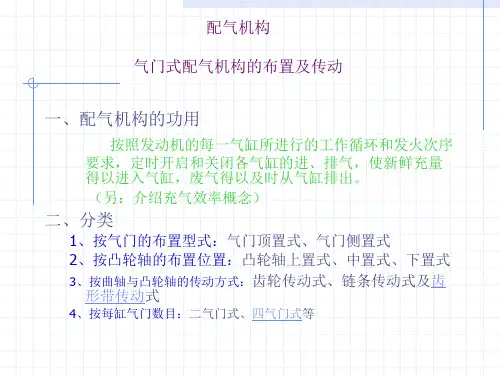 配气机构
气门式配气机构的布置及传动
一、配气机构的功用
按照发动机的每一气缸所进行的工作循环和发火次序
要求，定时开启和关闭各气缸的进、排气，使新鲜充量
得以进入气缸，废气得以及时从气缸排出。
（另：介绍充气效率概念）
二、分类
1、按气门的布置型式：气门顶置式、气门侧置式
2、按凸轮轴的布置位置：凸轮轴上置式、中置式、下置式
3、按曲轴与凸轮轴的传动方式：齿轮传动式、链条传动式及齿
形带传动式
4、按每缸气门数目：二气门式、四气门式等